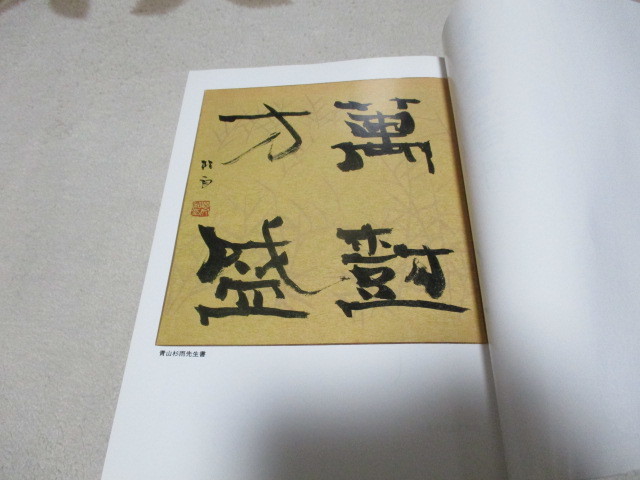 萬樹
方盛
杉雨
青山杉雨先生書